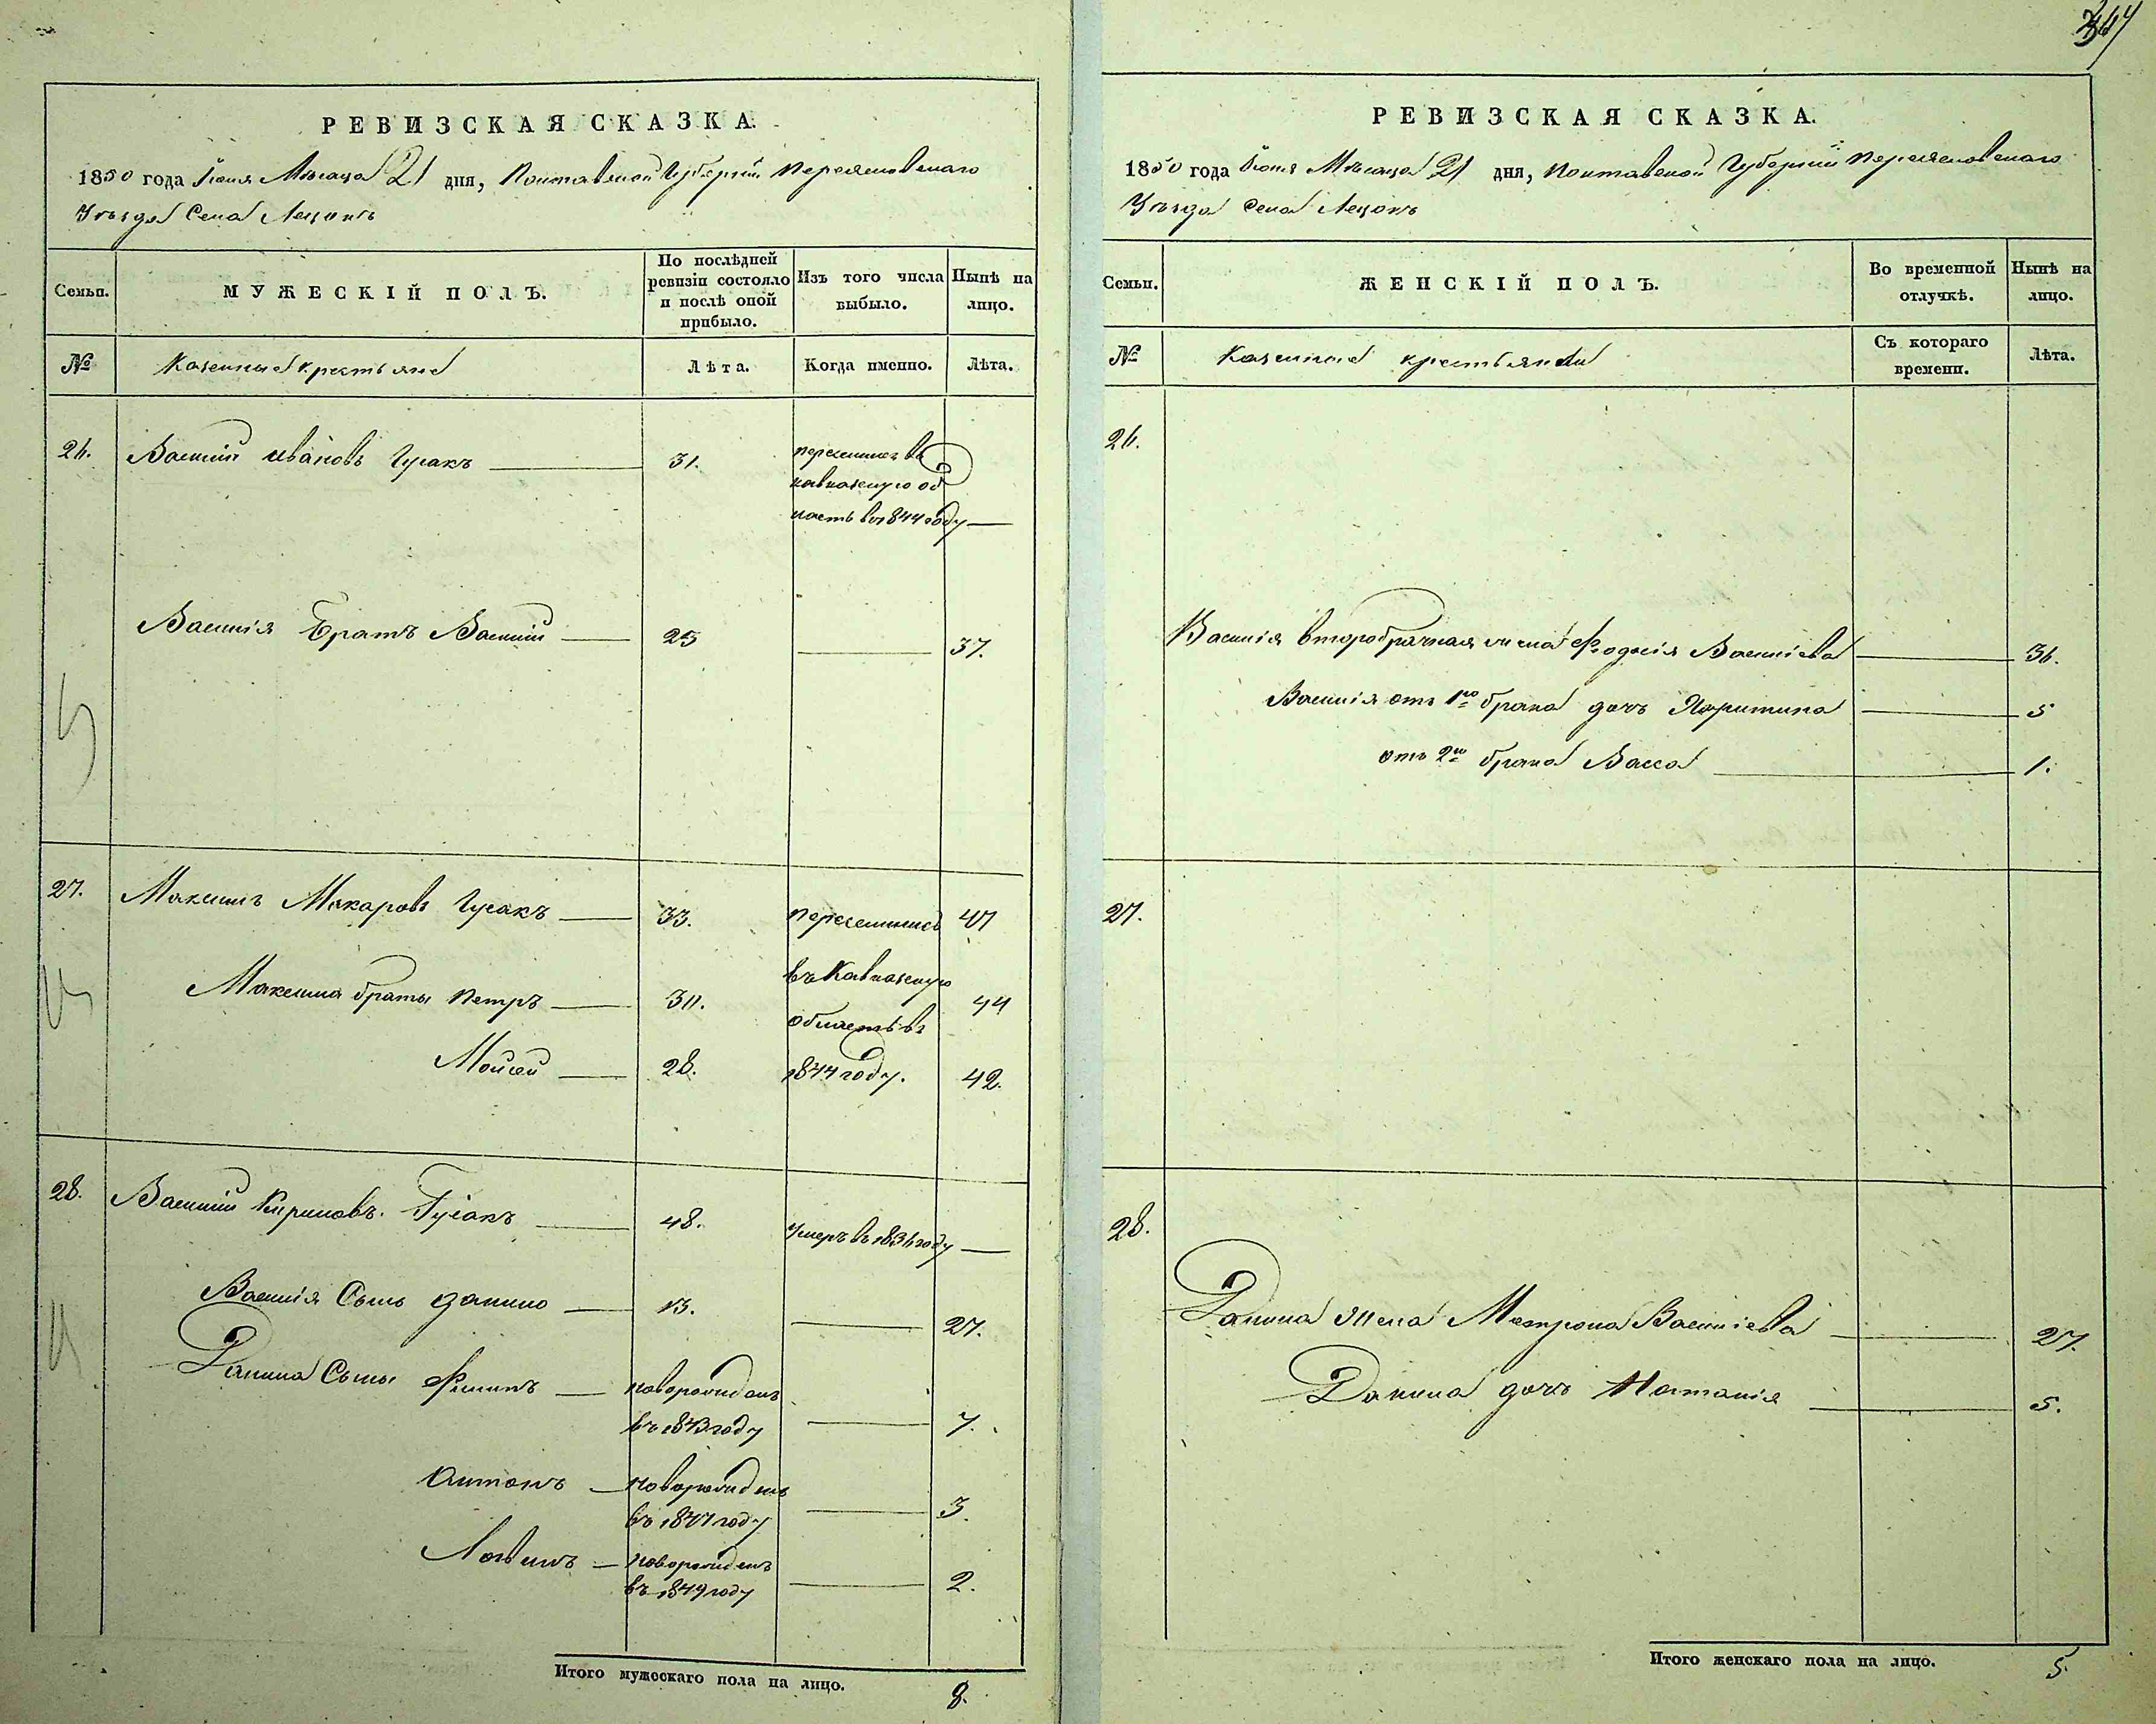 344
РЕВИЗСКАЯ СКАЗКА.
1850 года Іюня Мѣсяца 21 дня, Полтавской Губерніи Переяславскаго
Уѣзда Села Лецокъ
Семьи.
МУЖЕСКІЙ ПОЛЪ.
По послѣдней
ревизіи состояло
и послѣ оной
прибыло.
Изъ того числа
выбыло.
Нынѣ на
лицо.
№
Казенные крестьяне
Лѣта.
Когда именно.
Лѣта.
26.
Василій Ивановъ Гусакъ
31.
переселился въ
кавказскую об
ласть въ 1844 году
Василія Братъ Василій
23
37.
27.
Максимъ Макаровъ Гусакъ
33.
переселились
47
въ Кавказскую
Максима братья Петръ
30.
44
область въ
Мойсей
28.
1844 году.
42.
28.
Василій Кириловъ Гусакъ
48.
умеръ въ 1836 году
Василія Сынъ Данило
13.
27.
Данила Сыны Филипъ
новорожденъ
въ 1843 году
7.
Антонъ
новорожденъ
въ 1847 году
3.
Логвинъ
новорожденъ
въ 1849 году
2.
Итого мужескаго пола на лицо.
8.
РЕВИЗСКАЯ СКАЗКА.
1850 года Іюня Мѣсяца 21 дня, Полтавской Губерніи Переяславскаго
Уѣзда Села Лецокъ
Семьи.
ЖЕНСКІЙ ПОЛЪ.
Во временной
отлучкѣ.
Нынѣ на
лицо.
№
Казенные крестьянки
Съ котораго
времени.
Лѣта.
26.
Василія второбрачная жена Феодосія Василіева
36.
Василія отъ 1го брака дочь Харитина
5
отъ 2го брака Васса
1.
27.
28.
Данила жена Матрона Василіева
27.
Данила дочь Наталія
5.
Итого женскаго пола на лицо.
5.